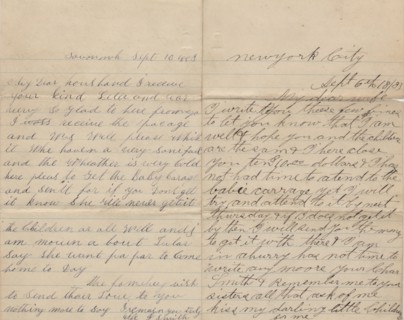 Savannah Sept 10 1883
My Dear Housband I receive
your Kind Letter and was
very Glad to here from you
I was receive the pacage
and Was Well please with
it We haven a very Some
and the Wheather is very Cold
here please to Get the Baby
and Send for if you Dont get
it Know She Will never get it
the Children or all Well and I
am a bout
Say She Want pa pa to Come
home to Day
the fameley wish
to Send thair Love to You
nothing more to Day I remain your Lady
Newyork City
Sept 6th 1883
My dear wife
I write you these few lines
to let you know that I am
well & hope you and the children
are the same I here close
you ten dollars I have
not had time to attend to the
babie carrage yet I will
try and attend to it by next
thursday if I does not get it
by then I will send you the money
to get it with there I am
in a hurry has not time to
write any moore your Chas
Smith & Remember me to your
sisters all that ask of me
kiss my darling little Children
for me